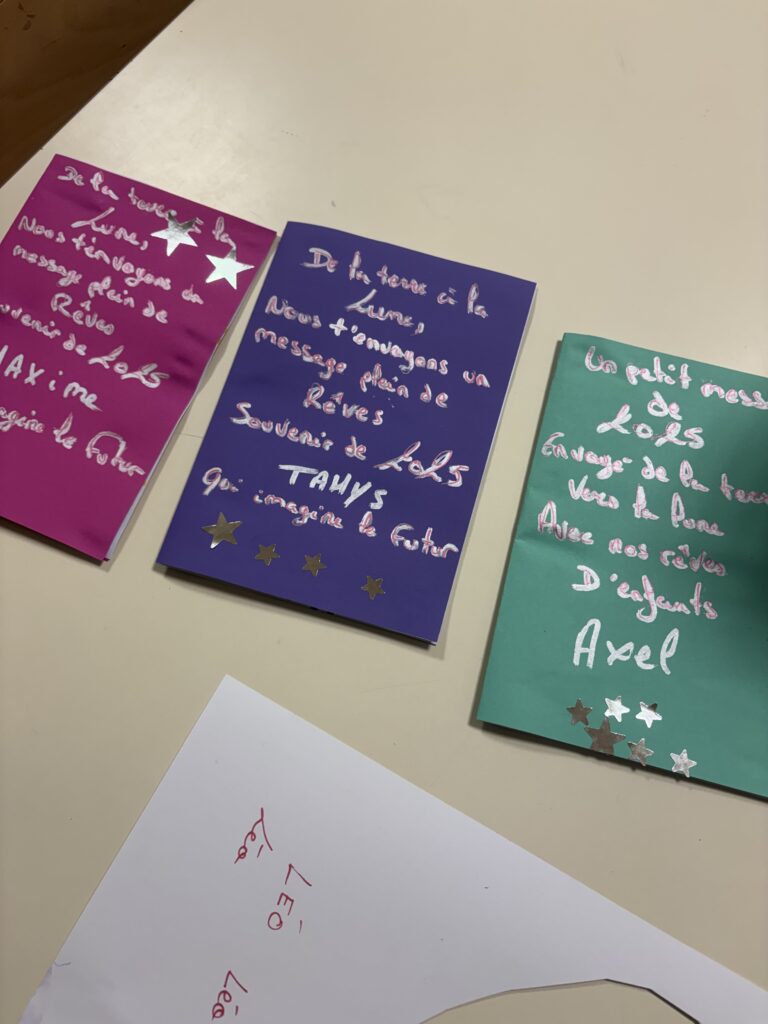 De la terre à la
Lune,
Nous t'envoyons un
message plein de
Rêves
Souvenir de 2025
MAXime
imagine le Futur
De la terre à la
Lune,
Nous t'envoyons un
message plein de
Rêves
Souvenir de 2025
TAHYS
Qui imagine le Futur
Un petit mess
de
2025
Envoyé de la terre
Vers la lune
Avec nos rêves
D'enfants
Axel
Léo
LÉO
Léo